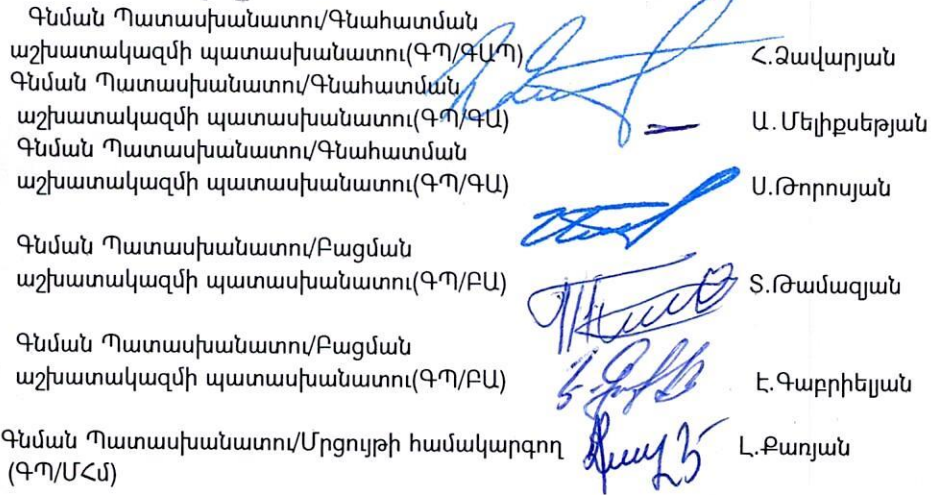 Գնման Պատասխանատու/Գնահատման
աշխատակազմի պատասխանատու(ԳՊ/ԳԱՊ) Հ.Զավարյան
Գնման Պատասխանատու/Գնահատման
աշխատակազմի պատասխանատու(ԳՊ/ԳԱ) Ա.Մելիքսեթյան
Գնման Պատասխանատու/Գնահատման
աշխատակազմի պատասխանատու(ԳՊ/ԳԱ) Ս.Թորոսյան
Գնման Պատասխանատու/Բացման
աշխատակազմի պատասխանատու(ԳՊ/ԲԱ) Տ.Թամազյան
Գնման Պատասխանատու/Բացման
աշխատակազմի պատասխանատու(ԳՊ/ԲԱ) Է.Գաբրիելյան
Գնման Պատասխանատու/Մրցույթի համակարգող Լ.Քառյան
(ԳՊ/ՄՀմ)